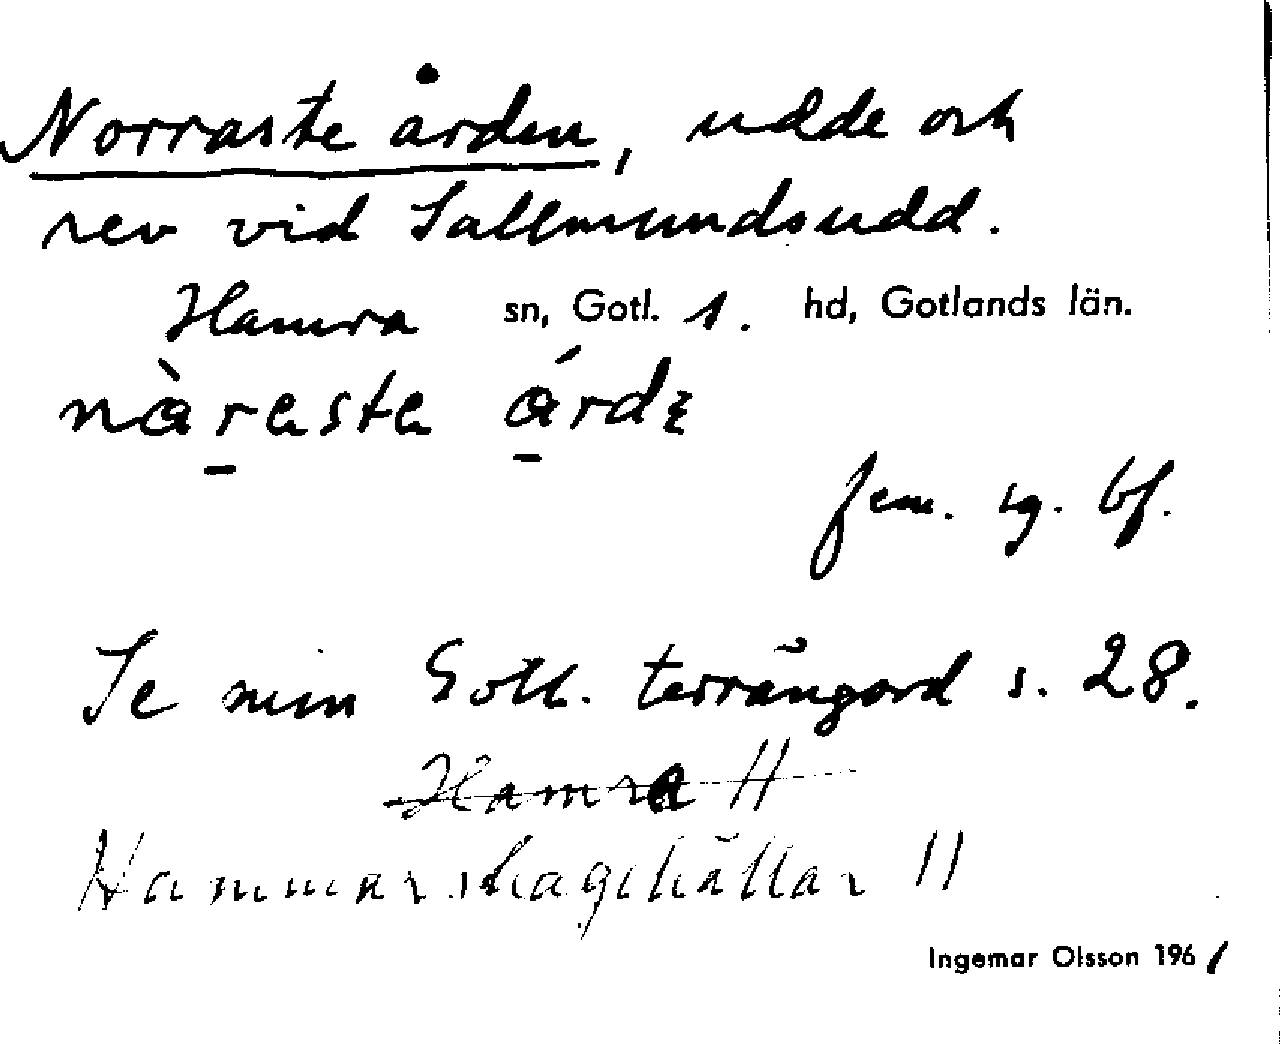 Norraste arden, udde och
rev vid Sallmundsudd.
Hamra sn, Gotl. s. hd, Gotlands län.
nàraste árdɛ
fem. sg. bf.
Se min Gotl. terrängord s. 28.
Hamra 11
Hammarshagehällar 11
Ingemar Olsson 1961